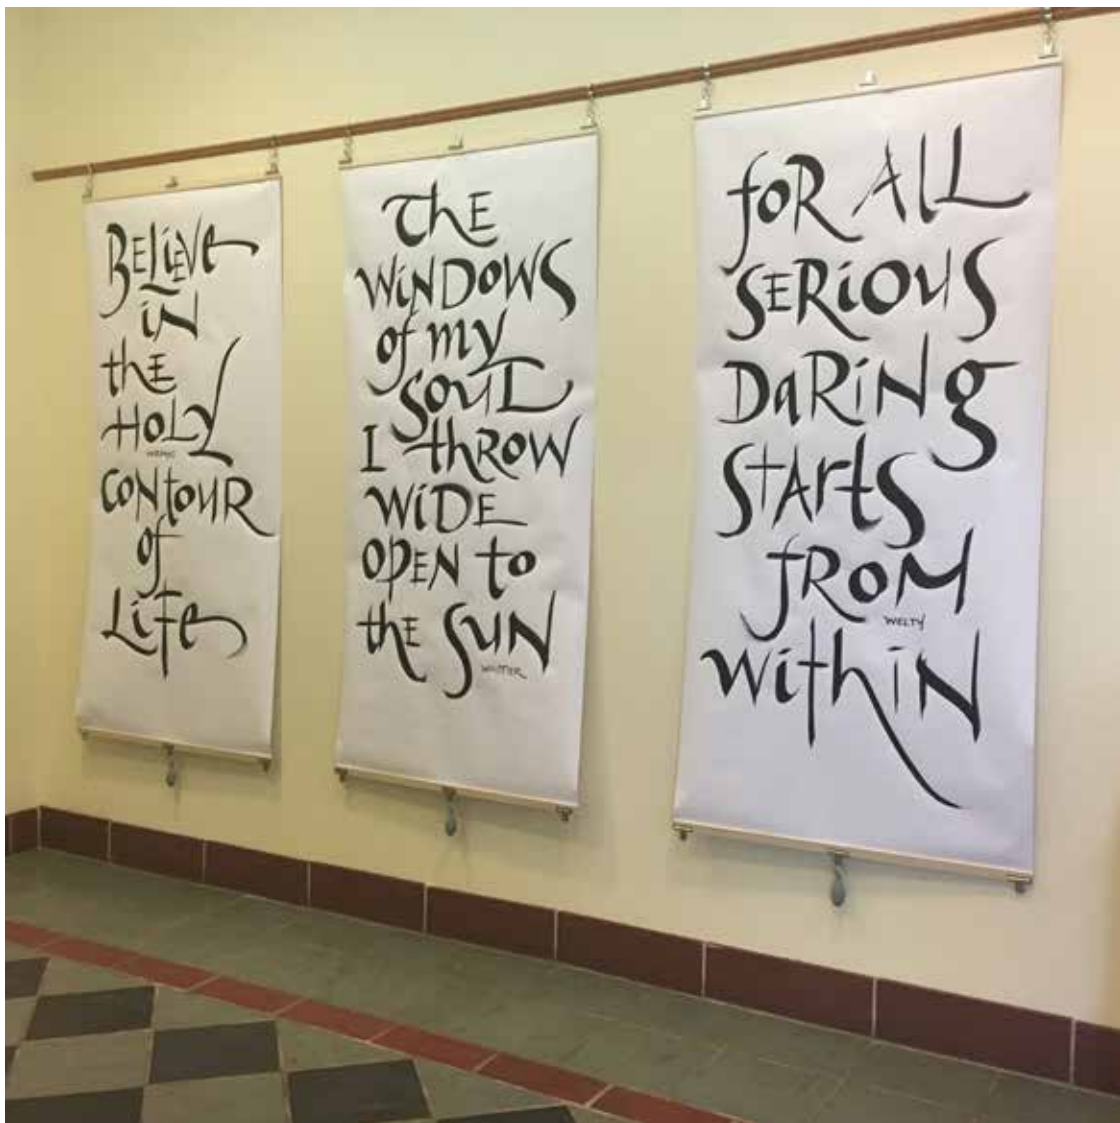 BELiEVe
iN
thE
HOLY
CONtOUR
of
LiFe
ThE
WiNDOWS
of my
SOUL
I thROW
WiDE
OPEN to
thE SUN
WHITTIER
foR AlL
SERiOUS
DaRiNg
StArtS
fROM
WELTY
withiN